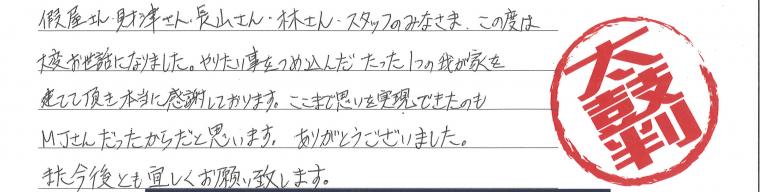 假屋さん・財津さん・長山さん・林さん・スタッフのみなさま、この度は
大変お世話になりました。やりたい事をつめ込んだ たった1つの我が家を
建てて頂き本当に感謝しております。ここまで思いを実現できたのも
MJさんだったからだと思います。ありがとうございました。
また今後とも宜しくお願い致します。
太鼓判